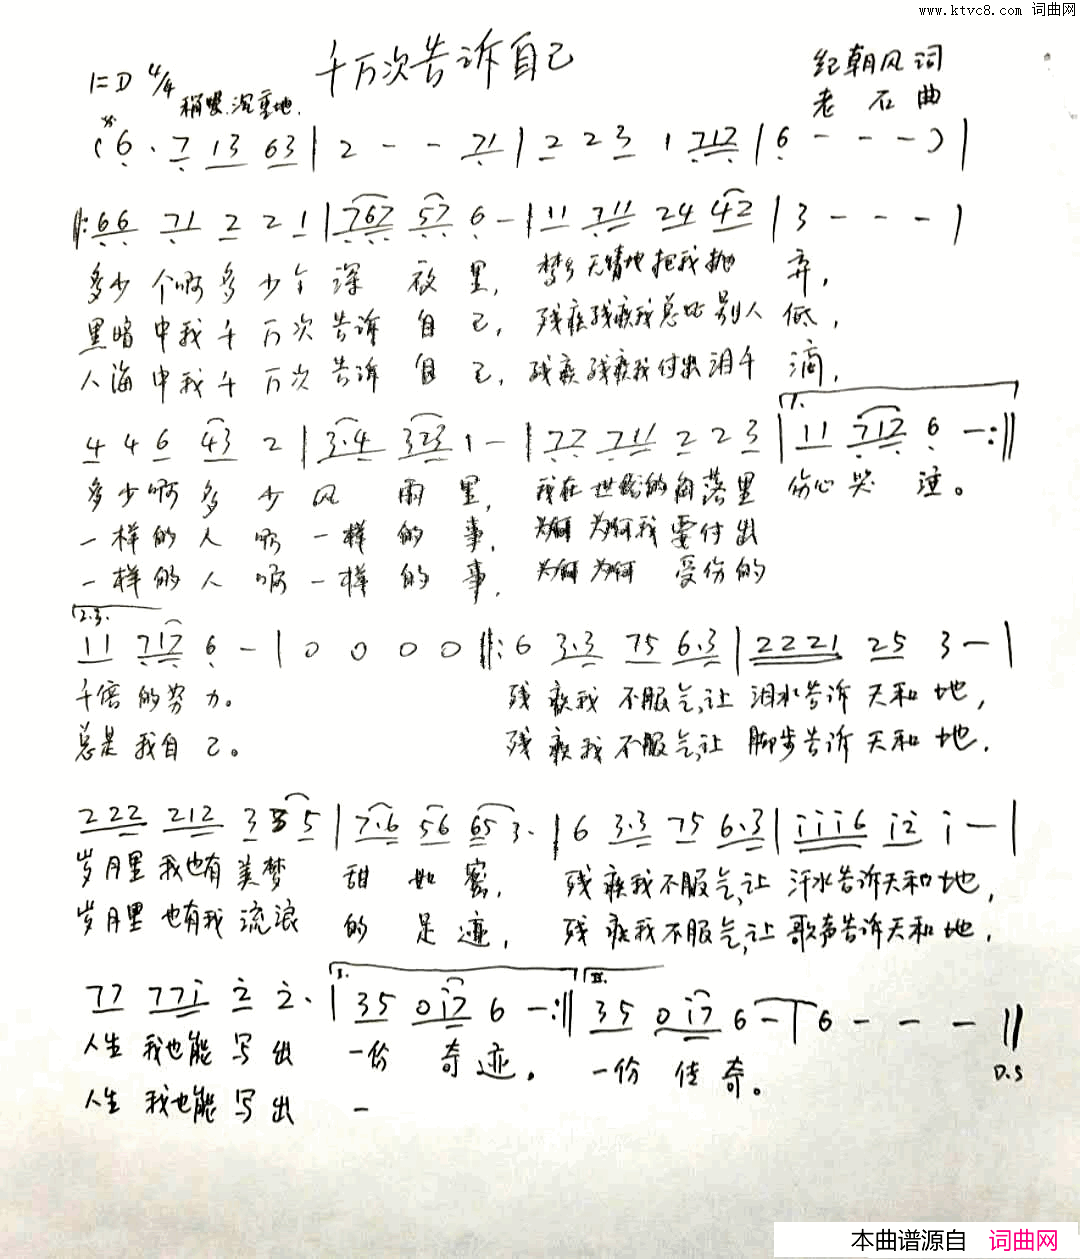 www.ktvc8.com 词曲网
千万次告诉自己
1=D 4/4 稍慢.沉重地.
纪朝风词
老石曲
(6· 7 13 63 | 2 - - 71 | 2 2 3 1 717 | 6 - - - ) |
|: 66 71 2 2 1 | 767 57 6 - | 11 711 24 42 | 3 - - - |
多少个啊多少个深夜里, 梦乡无情地把我抛弃,
黑暗中我千万次告诉自己, 残疾残疾我总比别人低,
人海中我千万次告诉自己, 残疾残疾我付出泪千滴,
4 4 6 43 2 | 3·4 323 1 - | 77 711 2 2 3 | 1. 11 717 6 - :||
多少啊多少风雨里, 我在世俗的角落里伤心哭泣。
一样的人啊一样的事, 为何为何我要付出
一样的人啊一样的事, 为何为何受伤的
2.3. 11 717 6 - | 0 0 0 0 ||: 6 3·3 75 6·3 | 2221 25 3 - |
千倍的努力。 残疾我不服气,让泪水告诉天和地,
总是我自己。 残疾我不服气,让脚步告诉天和地,
222 212 3 5 5 | 7·6 56 65 3· | 6 3·3 75 6·3 | iii6 i2 i - |
岁月里我也有美梦甜如蜜, 残疾我不服气,让汗水告诉天和地,
岁月里也有我流浪的足迹, 残疾我不服气,让歌声告诉天和地,
77 77i 2 2· | I. 35 0i7 6 - :|| II. 35 0i7 6 - | 6 - - - ||
D.S
人生我也能写出一份奇迹。 一份传奇。
人生我也能写出一
本曲谱源自 词曲网